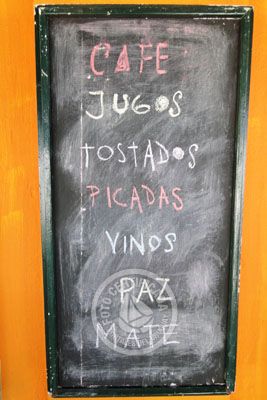 CAFE
JUGOS
TOSTADOS
PICADAS
VINOS
PAZ
MATE